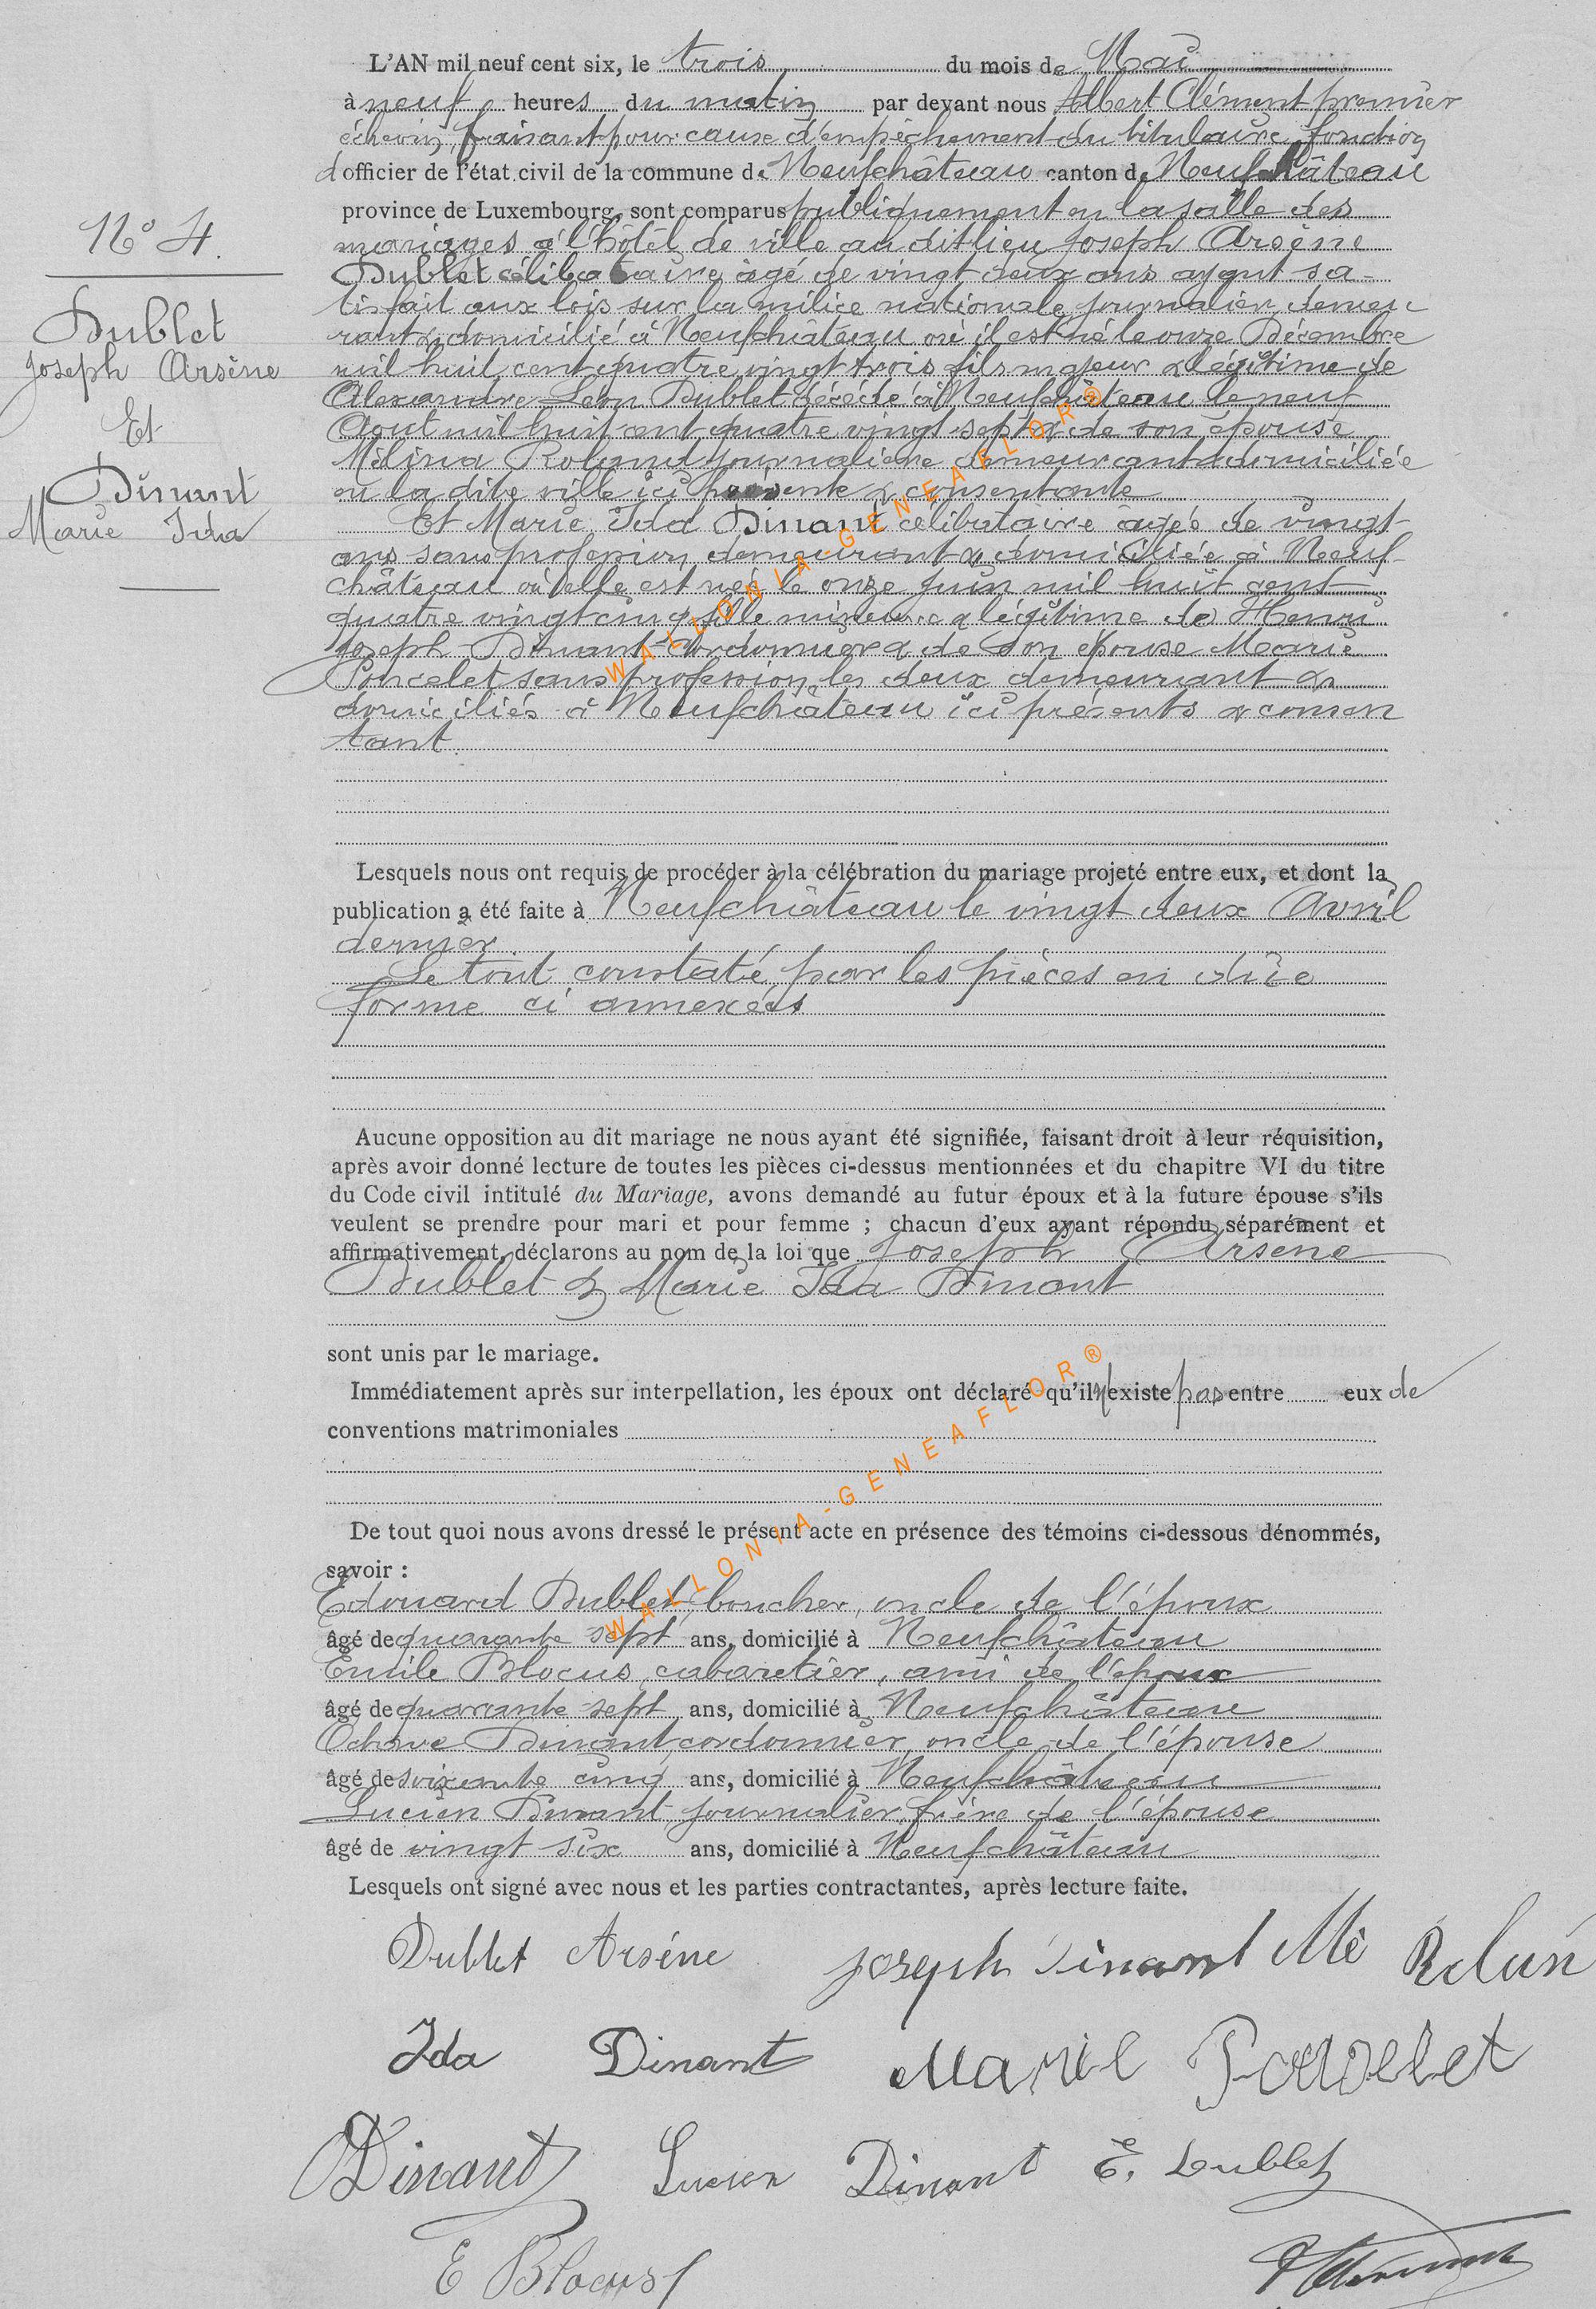 L'AN mil neuf cent six, le trois du mois de Mai
à neuf heures du matin par devant nous Albert Clément premier
échevin, faisant pour cause d'empêchement du titulaire, fonction
d'officier de l'état civil de la commune de Neufchâteau canton de Neufchâteau
province de Luxembourg, sont comparus publiquement en la salle des
mariages à l'hôtel de ville au dit lieu Joseph Arsène
Dublet célibataire âgé de vingt deux ans ayant sa-
tisfait aux lois sur la milice nationale, journalier, demeu
rant & domicilié à Neufchâteau où il est né le onze Décembre
mil huit cent quatre vingt trois fils majeur & légitime de
Alexandre Léon Dublet décédé à Neufchâteau le neuf
Août mil huit cent quatre vingt sept & de son épouse
Mélina Roland journalière demeurant & domiciliée
en la dite ville ici présente & consentante
Et Marie Ida Dinant célibataire âgée de vingt
ans sans profession, demeurant & domiciliée à Neuf-
château où elle est née le onze Juin mil huit cent
quatre vingt cinq fille mineure & légitime de Henri
Joseph Dinant cordonnier & de son épouse Marie
Poncelet sans profession, les deux demeurant &
domiciliés à Neufchâteau ici présents & consen
tant.
N° 4.
Dublet
Joseph Arsène
Et
Dinant
Marie Ida
Lesquels nous ont requis de procéder à la célébration du mariage projeté entre eux, et dont la
publication a été faite à Neufchâteau le vingt deux Avril
dernier
Le tout constaté par les pièces en dûe
forme ci annexées
Aucune opposition au dit mariage ne nous ayant été signifiée, faisant droit à leur réquisition,
après avoir donné lecture de toutes les pièces ci-dessus mentionnées et du chapitre VI du titre
du Code civil intitulé du Mariage, avons demandé au futur époux et à la future épouse s'ils
veulent se prendre pour mari et pour femme ; chacun d'eux ayant répondu séparément et
affirmativement, déclarons au nom de la loi que Joseph Arsène
Dublet & Marie Ida Dinant
sont unis par le mariage.
Immédiatement après sur interpellation, les époux ont déclaré qu'il n'existe pas entre eux de
conventions matrimoniales
De tout quoi nous avons dressé le présent acte en présence des témoins ci-dessous dénommés,
savoir :
Edouard Dublet, boucher, oncle de l'époux
âgé de quarante sept ans, domicilié à Neufchâteau
Emile Blocus, cabaretier, ami de l'époux
âgé de quarante sept ans, domicilié à Neufchâteau
Octave Dinant, cordonnier, oncle de l'épouse
âgé de soixante cinq ans, domicilié à Neufchâteau
Lucien Dinant, journalier, frère de l'épouse
âgé de vingt six ans, domicilié à Neufchâteau
Lesquels ont signé avec nous et les parties contractantes, après lecture faite.
Dublet Arsène Joseph Dinant Mé
Ida Dinant Marie Poncelet
Dinant Lucien Dinant E. Dublet
E Blocus
WALLONIA-GENEAFLOR®
WALLONIA-GENEAFLOR®